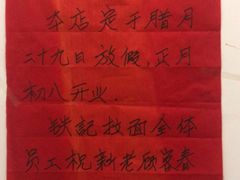 本店定于腊月
二十九日放假，正月
初八开业．
铁記拉面全体
员工祝新老顾客春